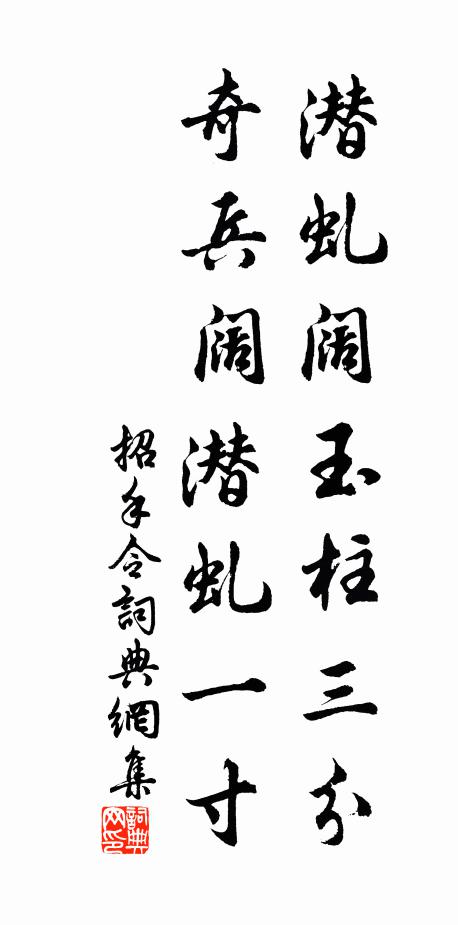 潜虬阔玉柱三分
奇兵阔潜虬一寸
招手令詞典網集
詞典网印